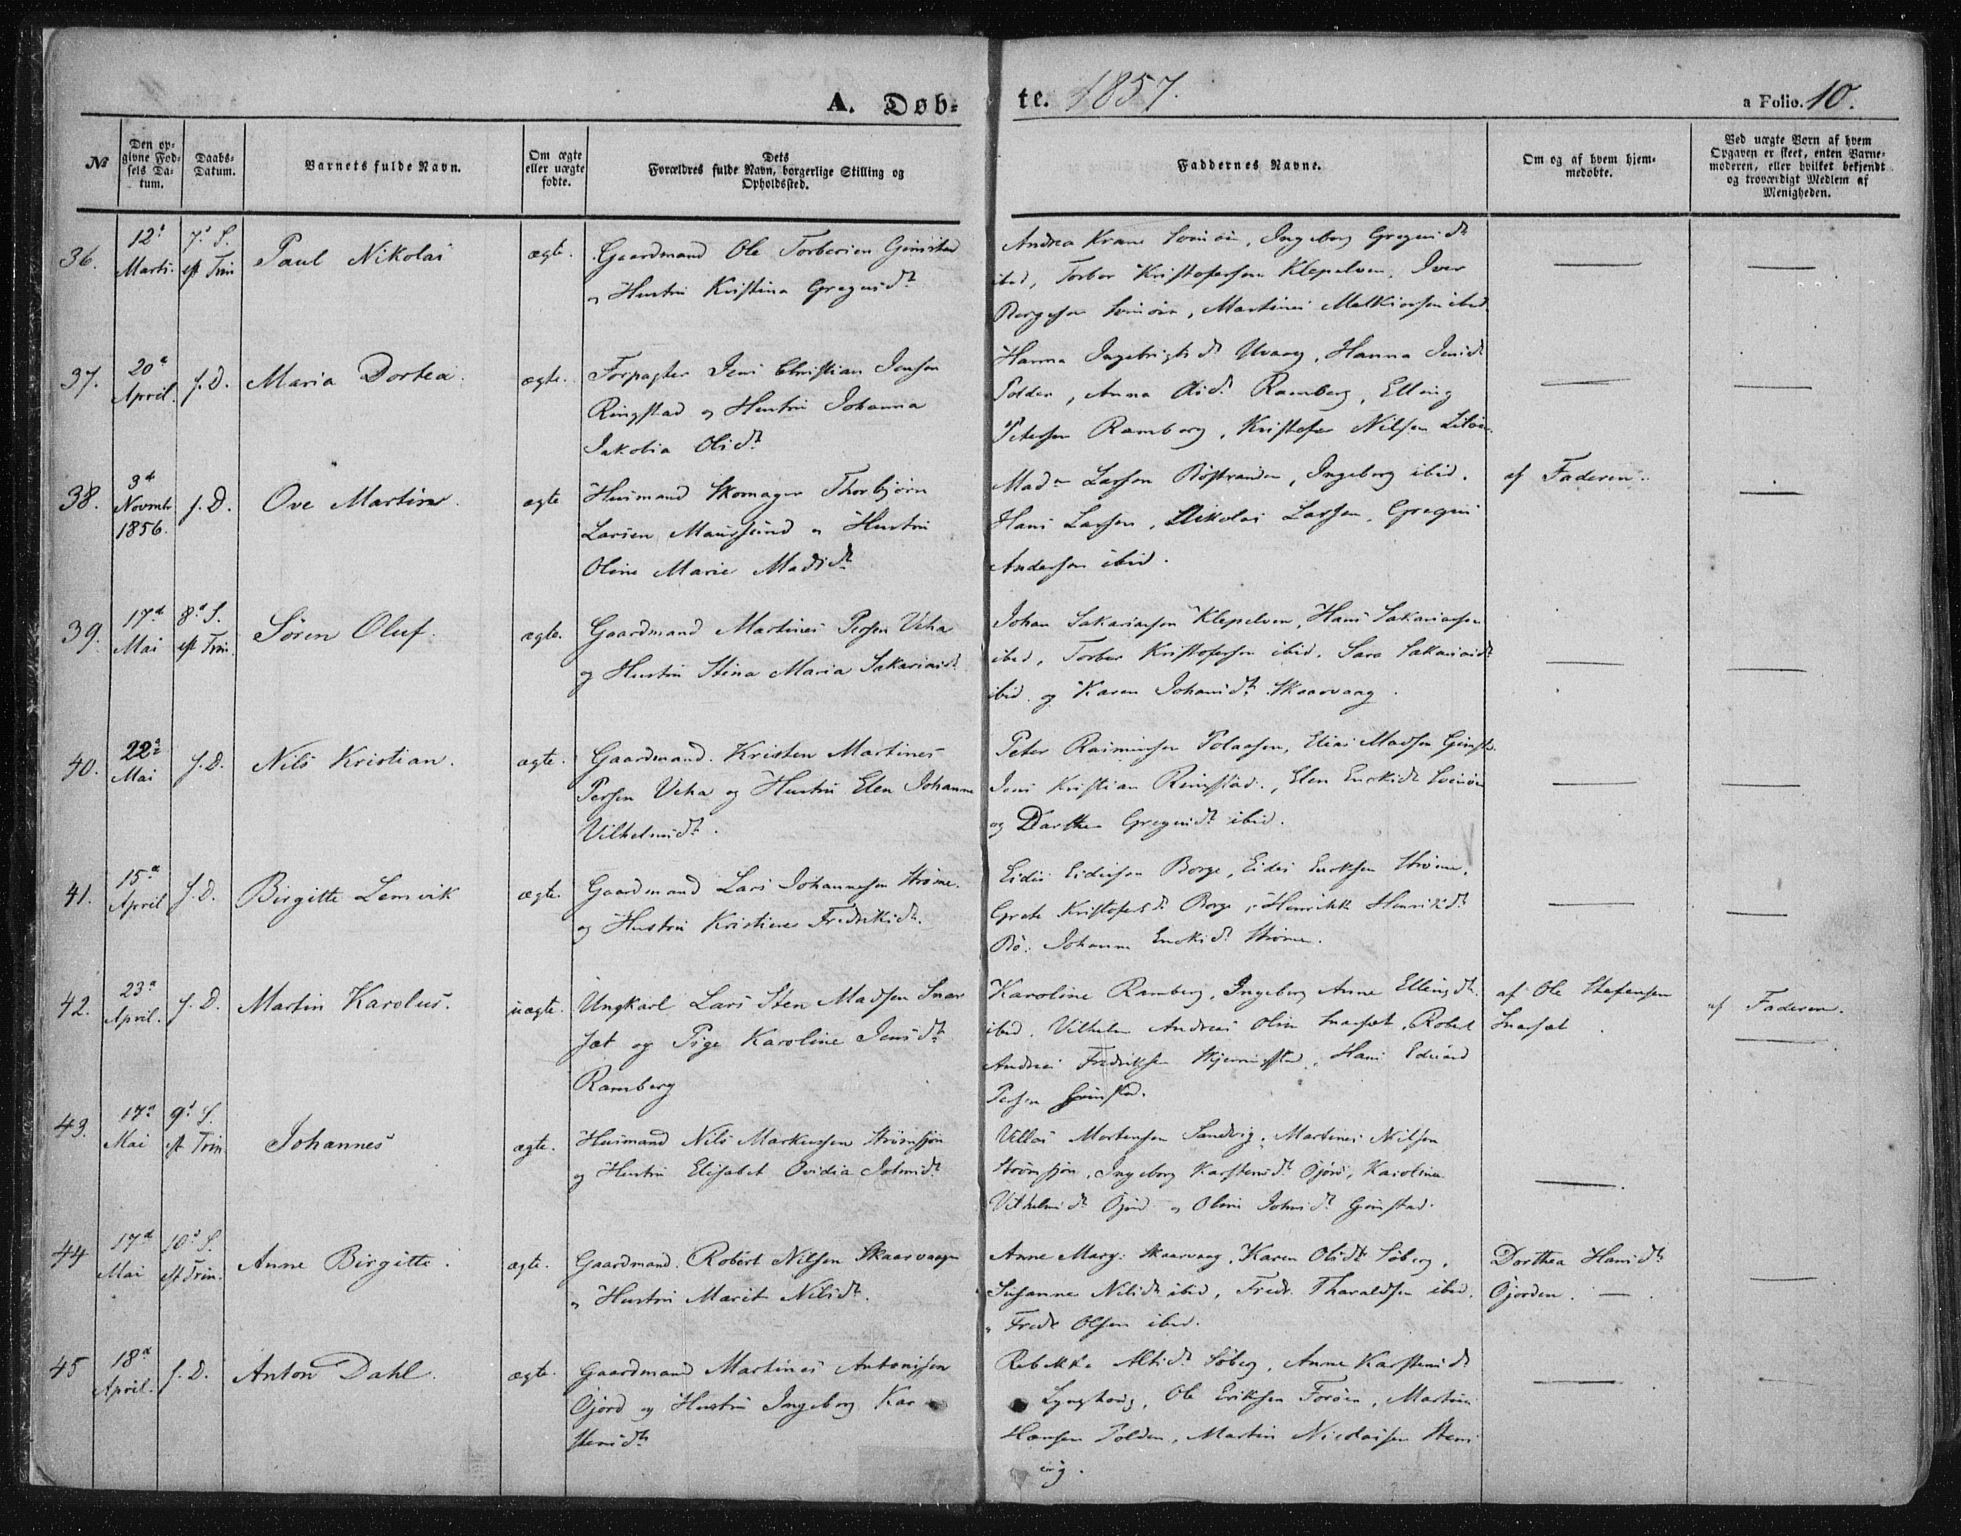 A. Døb-te. 1857. a Folio. 10.
No
Den op-
givne Fød-
sels Da-
tum.
Daabs-
Datum.
Barnets fulde Navn.
Om ægte
eller uægte
fødte.
Dets
Forældres fulde Navn, borgerlige Stilling og
Opholdssted.
Faddernes Navne.
Om og af hvem hjem-
medøbte.
Ved uægte Børn af hvem
Opgaven er skeet, enten Barne-
moderen, eller hvilket bekjendt
og troværdigt Medlem af
Menigheden.
36. 12te Marts. 7d S. eft Trin Paul Nikolai ægte.
Gaardmand Ole Torbersen Gimstad
og Hustru Kristina Gregersdt
Andrea Krane Svinøen, Ingeborg Gregersdt
ibid, Torber Kristofersen Klepelven, Iver
Borgesen Svinøen, Martines Melkiorsen ibid
37. 20d April. s. D. Maria Dortea. ægte.
Forpagter Jens Christian Jensen
Ringstad og Hustru Johanna
Jakobia Olsdt
Hanna Ingebrigtsdt Uvaag, Hanna Jensdt
Polden, Anna Olsdt Ramberg, Elling
Petersen Ramberg, Kristofer Nilsen
38. 3de Novmbr 1856. s. D. Ove Martin. ægte
Huusmand Skomager Thorbjørn
Larsen Maursund og Hustru
Oline Marie Madsdt
Mads Larsen Bøstranden, Ingeborg ibid.
Hans Larsen, Nikolai Larsen, Gregus
Andersen ibid.
af Faderen.
39. 17d Mai 8d S. eft Trin. Søren Oluf. ægte.
Gaardmand Martines Persen Veha
og Hustru Stina Maria Sakariasdt
Johan Sakariassen Klepelven, Hans Sakariassen
ibid, Torber Kristofersen ibid. Sara Sakariasdt
ibid. og Karen Johansdt Skaarvaag.
40. 22d Mai s. D. Nils Kristian. ægte.
Gaardmand. Kristen Martines
Persen Veha og Hustru Elen Johanne
Vilhelmsdt.
Peter Rasmussen Polaasen, Elias Madsen Gimst.
Jens Kristian Ringstad., Elen Eriksdt Svinøen
og Darthea Gregersdt ibid.
41. 15d April s. D. Birgitte Lemvik ægte.
Gaardmand Lars Johannesen Strøme.
og Hustru Kristine Fredriksdt.
Eidis Eidissen Borge, Eidis Eriksen Strøme,
Grete Kristofersdt Borge, Henrikke Henriksdt
Bø. Johanne Eriksdt Strøme.
42. 23d April. s. D. Martin Karolus. uægte.
Ungkarl Lars Sten Madsen Snar
sæt og Pige Karoline Jensdt
Ramberg
Karoline Ramberg, Ingeborg Anne Ellingsdt
ibid. Vilhelm Andreas Olsen Snarsæt, Robert
Andreas Fredriksen Skjerningstad, Hans Edvard
Persen Grimstad.
af Ole Stefensen
Snarsæt.
af Faderen.
43. 17d Mai 9d S. eft Trin Johannes ægte.
Huusmand Nils Markussen Strømsjøn
og Hustru Elisabet Ovidia Johnsdt
Villas Mortensen Sandvig, Martines Nilsen
Strømsjøn, Ingeborg Karstensdt Øjord, Karoline
Vilhelmsdt Øjord og Oline Johnsdt Gimstad.
44 17d Mai 10d S. eft Trin. Anne Birgitte. ægte.
Gaardmand. Robert Nilsen Skaarvaagen
og Hustru Marit Nilsdt.
Anne Marg: Skaarvaag, Karen Olsdt Søberg,
Susanne Nilsdt ibid, Fredr. Tharaldsen ibid.
og Fredr Olsen ibid.
Dorthea Hansdt
Øjorden.
45 18d April. s. D. Anton Dahl. ægte.
Gaardmand Martines Antonissen
Øjord og Hustru Ingeborg Kar
stensdt
Rebekka Altsdt Søberg, Anne Karstensdt
Lynghoug, Ole Eriksen Forøen, Martin
Hansen Polden, Martin Nicolaisen Stens
vig.